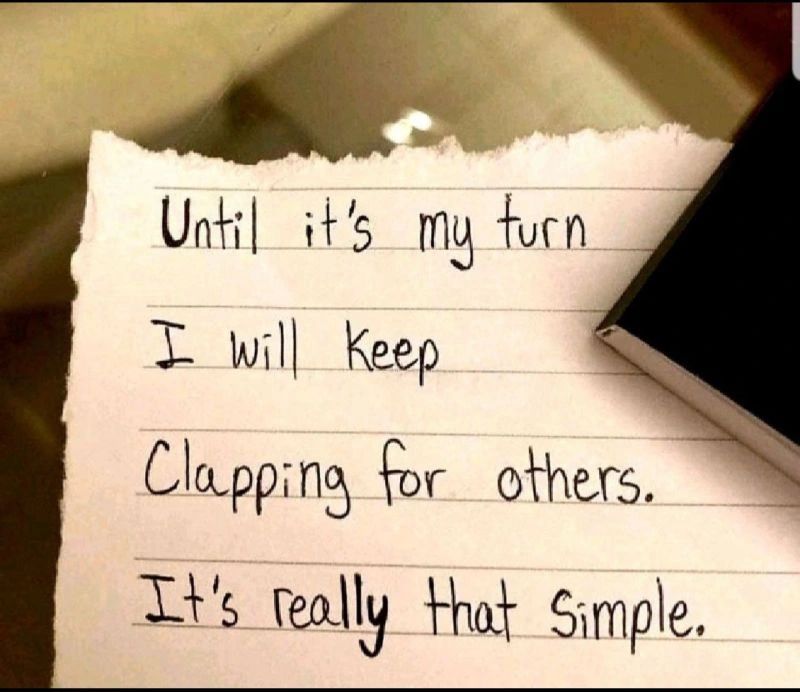 Until it's my turn
I will keep
Clapping for others.
It's really that simple.